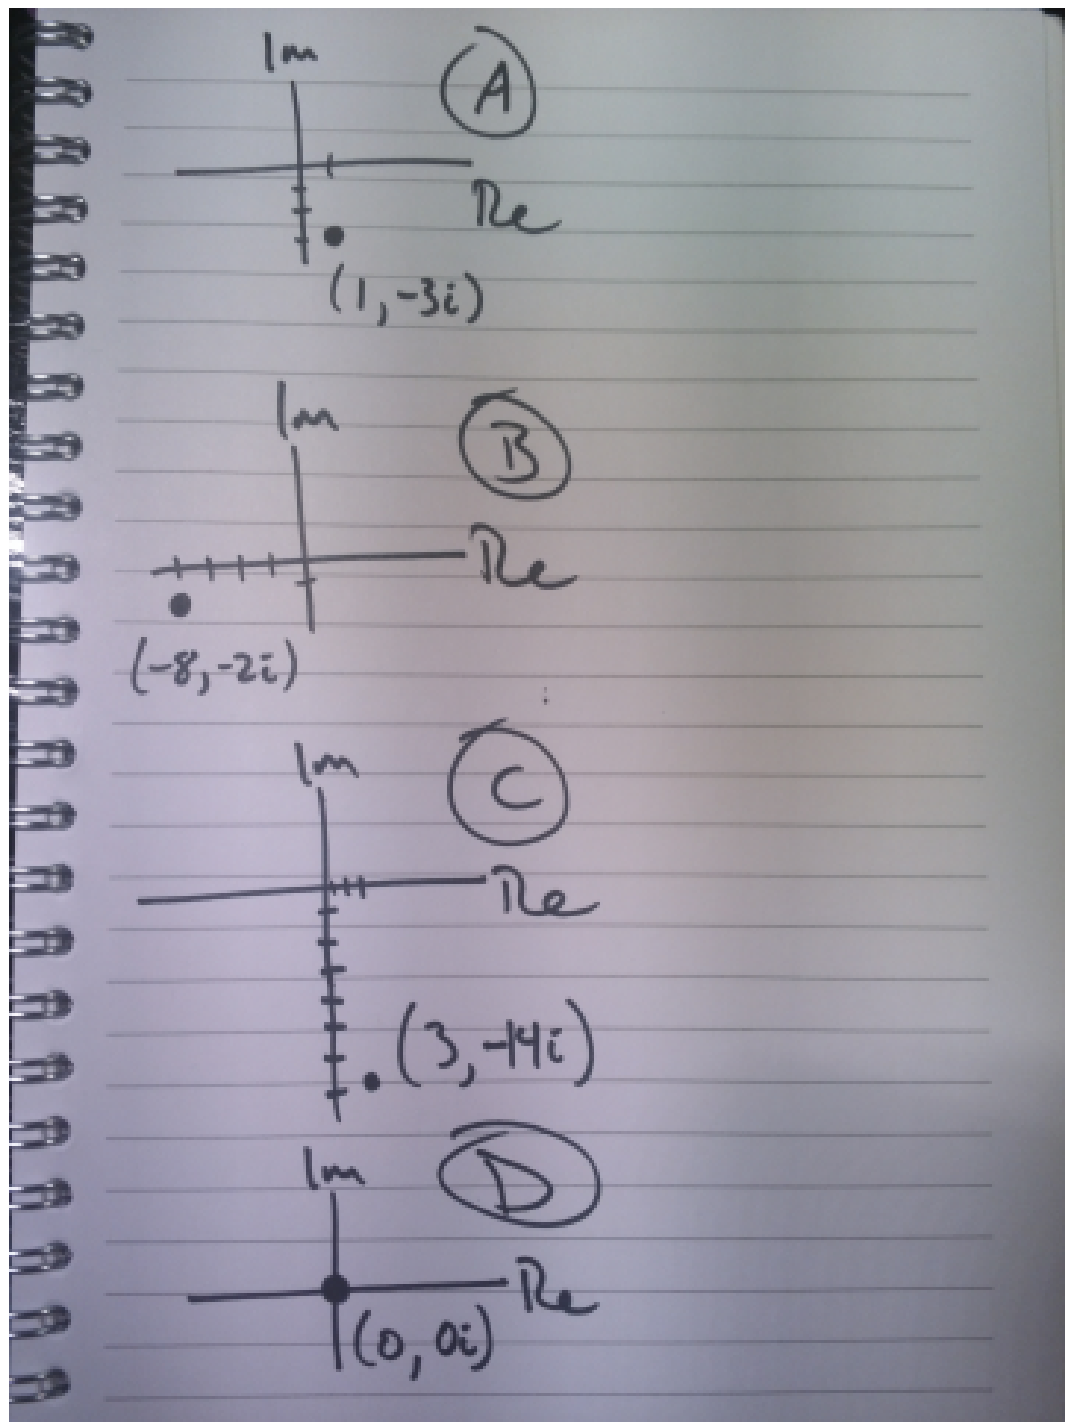 Im
A
Re
(1, -3i)
Im
B
Re
(-8, -2i)
Im
C
Re
(3, -14i)
Im
D
Re
(0, 0i)